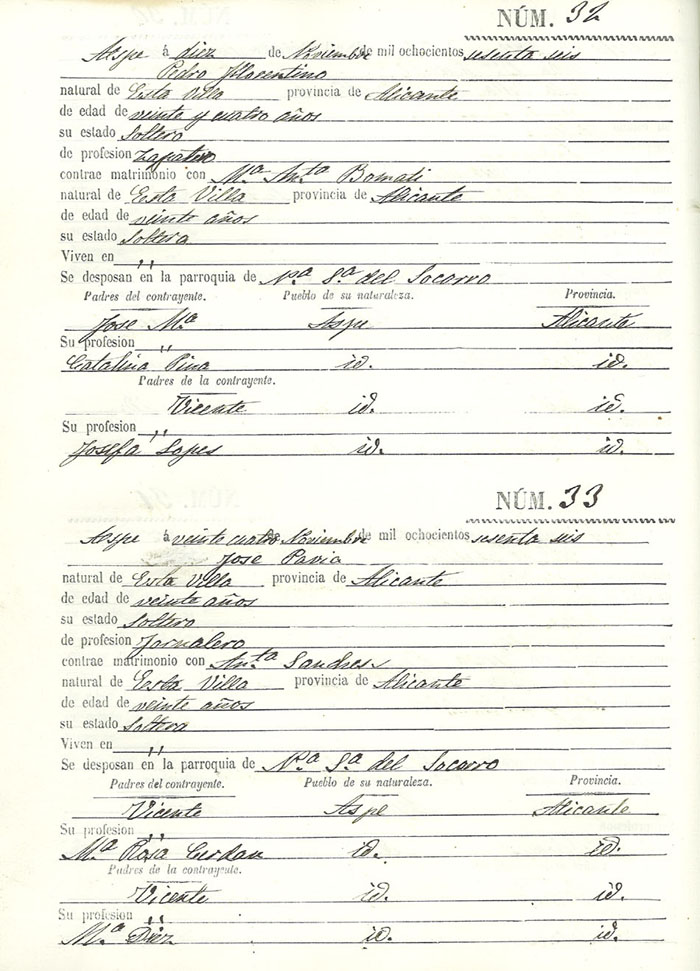 NÚM. 32
Aspe á diez de Noviembre de mil ochocientos sesenta seis
Pedro Florentino
natural de Esta Villa provincia de Alicante
de edad de veinte y cuatro años
su estado Soltero
de profesion Zapatero
contrae matrimonio con Mª Antª Bomati
natural de Esta Villa provincia de Alicante
de edad de veinte años
su estado Soltera
Viven en ,,
Se desposan en la parroquia de Nª Sª del Socorro
Padres del contrayente. Pueblo de su naturaleza. Provincia.
Jose Mª Aspe Alicante
Su profesion ,,
Catalina Pina id. id.
Padres de la contrayente.
Vicente id. id.
Su profesion ,,
Josefa Lopes id. id.
NÚM. 33
Aspe á veinte cuatro Noviembre de mil ochocientos sesenta seis
Jose Pavia
natural de Esta Villa provincia de Alicante
de edad de veinte años
su estado Soltero
de profesion Jornalero
contrae matrimonio con Antª Sandres
natural de Esta Villa provincia de Alicante
de edad de veinte años
su estado Soltera
Viven en ,,
Se desposan en la parroquia de Nª Sª del Socorro
Padres del contrayente. Pueblo de su naturaleza. Provincia.
Vicente Aspe Alicante
Su profesion ,,
Mª Rosa Cerdan id. id.
Padres de la contrayente.
Vicente id. id.
Su profesion ,,
Mª Diez id. id.